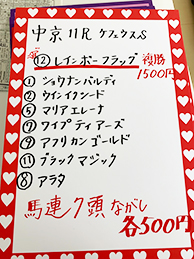 中京11R ケフェウスS
⑫レインボーフラッグ 複勝
1500円
①ショウナンバルディ
②ウインイクシード
⑤マリアエレーナ
⑦ワイプティアーズ
⑨アフリカンゴールド
⑪ブラックマジック
⑧アラタ
馬連7頭ながし
各500円